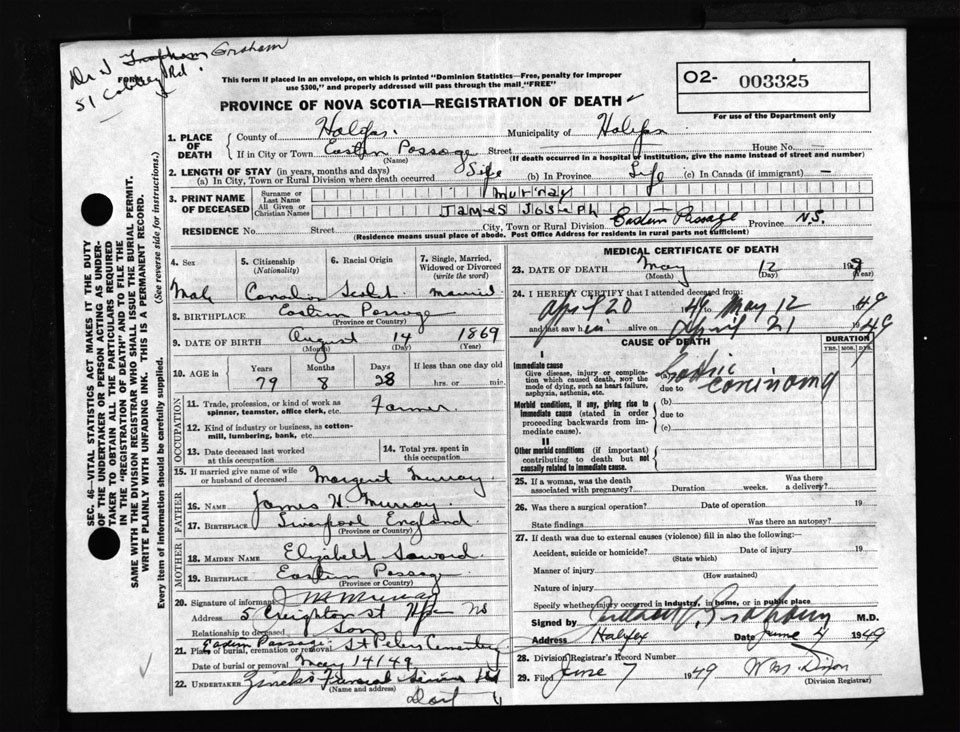 Dr J Graham
FORM
51 Coburg Rd.
This form if placed in an envelope, on which is printed "Dominion Statistics—Free, penalty for improper
use $300," and properly addressed will pass through the mail "FREE"
O2- 003325
For use of the Department only
PROVINCE OF NOVA SCOTIA—REGISTRATION OF DEATH
1. PLACE OF DEATH
County of Halifax. Municipality of Halifax
If in City or Town Eastern Passage Street House No. —
(Name) (If death occurred in a hospital or institution, give the name instead of street and number)
2. LENGTH OF STAY (in years, months and days)
(a) In City, Town or Rural Division where death occurred Life (b) In Province Life (c) In Canada (if immigrant) —
3. PRINT NAME OF DECEASED
Surname or Last Name Murray
All Given or Christian Names James Joseph
RESIDENCE No. Street City, Town or Rural Division Eastern Passage Province N.S.
(Residence means usual place of abode. Post Office Address for residents in rural parts not sufficient)
4. Sex Male
5. Citizenship (Nationality) Canadian
6. Racial Origin
7. Single, Married, Widowed or Divorced (write the word) Married
8. BIRTHPLACE Eastern Passage
(Province or Country)
9. DATE OF BIRTH August 14 1869
(Month) (Day) (Year)
10. AGE in Years Months Days If less than one day old
79 8 28 hrs. or min.
OCCUPATION
11. Trade, profession, or kind of work as spinner, teamster, office clerk, etc. Farmer.
12. Kind of industry or business, as cotton-mill, lumbering, bank, etc.
13. Date deceased last worked at this occupation
14. Total yrs. spent in this occupation.
15. If married give name of wife or husband of deceased Margaret Murray
FATHER
16. Name James H. Murray
17. Birthplace Liverpool England.
(Province or Country)
MOTHER
18. Maiden Name Elizabeth
19. Birthplace Eastern Passage
(Province or Country)
20. Signature of informant Murray
Address 5 Creighton St Hfx NS
Relationship to deceased Son
Eastern Passage.
21. Place of burial, cremation or removal St Peters Cementry
Date of burial or removal May 14/49
22. UNDERTAKER Funeral Service Ltd
(Name and address)
Dart
MEDICAL CERTIFICATE OF DEATH
23. DATE OF DEATH May 12
(Month) (Day) (Year)
24. I HEREBY CERTIFY that I attended deceased from:
April 20 49 May 12 1949
and last saw him alive on April 21 1949
CAUSE OF DEATH
DURATION
YRS. MOS. DYS.
I
Immediate cause
Give disease, injury or complication which caused death, NOT the mode of dying, such as heart failure, asphyxia, asthenia, etc.
(a) carcinoma
due to
Morbid conditions, if any, giving rise to immediate cause (stated in order proceeding backwards from immediate cause).
(b)
due to
(c)
II
Other morbid conditions (if important) contributing to death but not causally related to immediate cause.
25. If a woman, was the death associated with pregnancy? Duration weeks. Was there a delivery?
26. Was there a surgical operation? Date of operation 19
State findings Was there an autopsy?
27. If death was due to external causes (violence) fill in also the following:—
Accident, suicide or homicide? Date of injury 19
(State which)
Manner of injury
(How sustained)
Nature of injury
Specify whether injury occurred in industry, in home, or in public place
Signed by M.D.
Address Halifax Date June 4 1949
28. Division Registrar's Record Number
29. Filed June 7 1949 W M Dixon
(Division Registrar)
SEC. 46—VITAL STATISTICS ACT MAKES IT THE DUTY
OF THE UNDERTAKER OR PERSON ACTING AS UNDER-
TAKER TO OBTAIN ALL THE PARTICULARS REQUIRED
IN THE "REGISTRATION OF DEATH" AND TO FILE THE
SAME WITH THE DIVISION REGISTRAR WHO SHALL ISSUE THE BURIAL PERMIT.
WRITE PLAINLY WITH UNFADING INK. THIS IS A PERMANENT RECORD.
Every item of information should be carefully supplied. (See reverse side for instructions.)